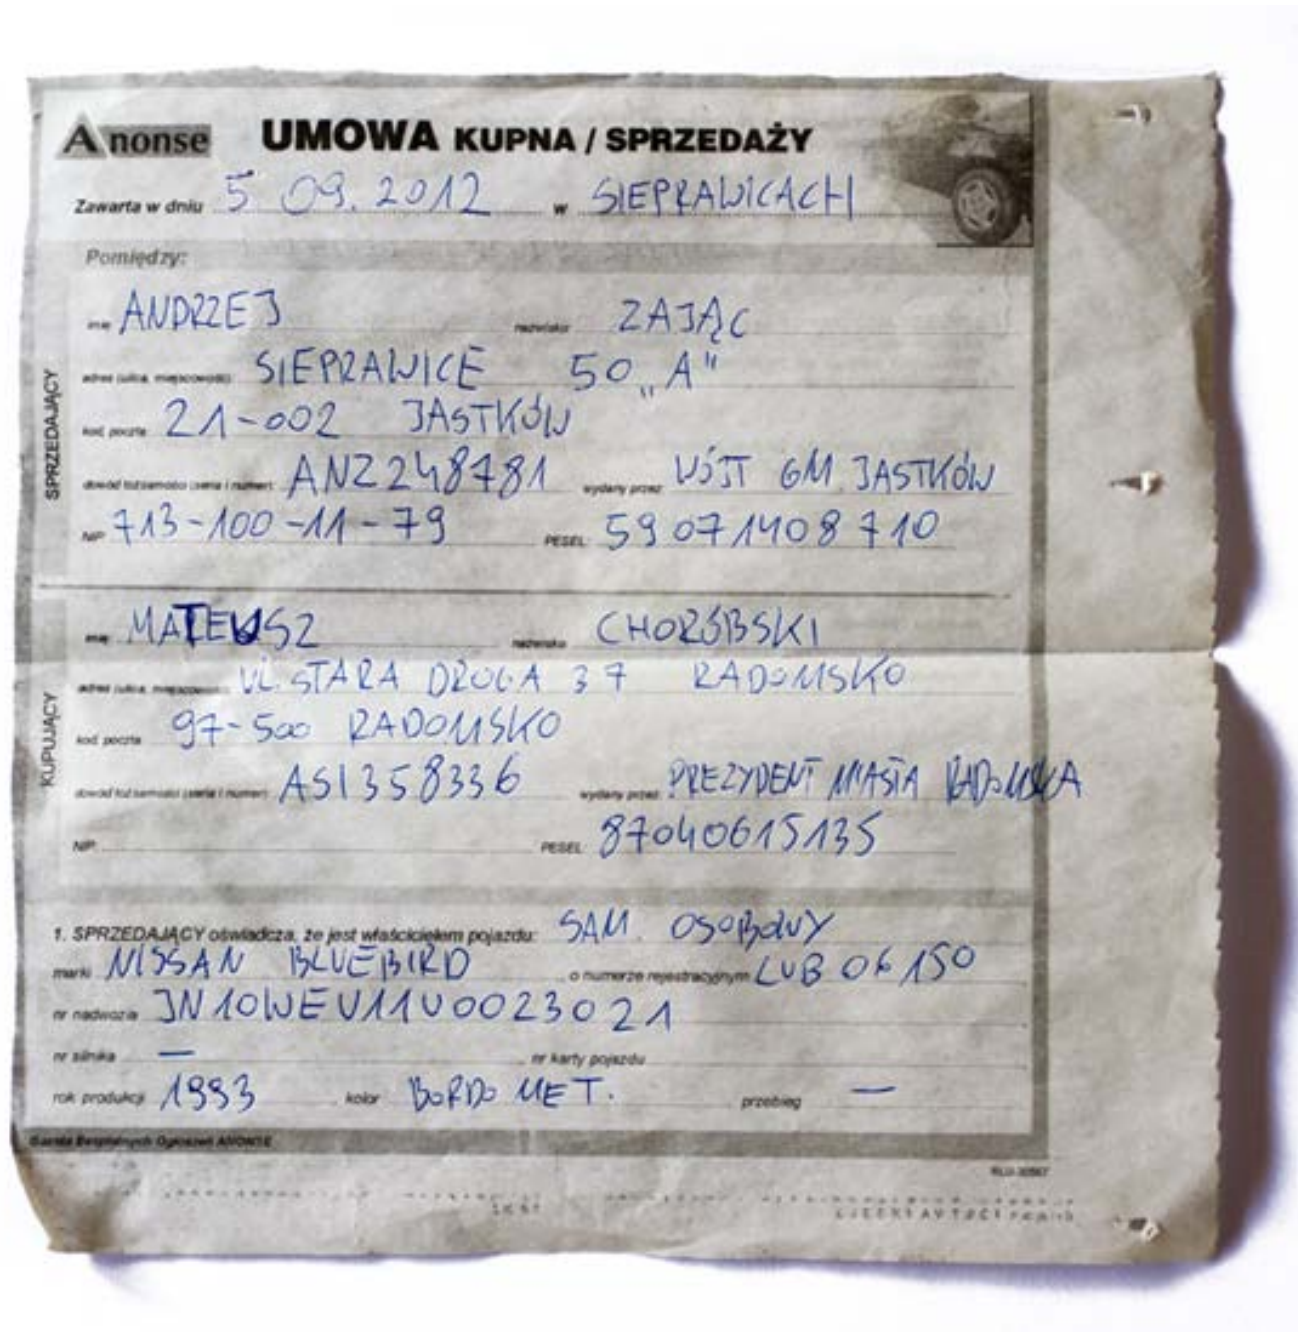 Anonse UMOWA KUPNA / SPRZEDAŻY
Zawarta w dniu 5 09. 2012 w SIEPRAWICACH
Pomiędzy:
SPRZEDAJĄCY
imię ANDRZEJ nazwisko ZAJĄC
adres (ulica, miejscowość) SIEPRAWICE 50 „A"
kod, poczta 21-002 JASTKÓW
dowód tożsamości (seria i numer) ANZ248781 wydany przez WÓJT GM. JASTKÓW
NIP 713-100-11-79 PESEL 59071408710
KUPUJĄCY
imię MATEUSZ nazwisko CHORÓBSKI
adres (ulica, miejscowość) UL. STARA DROGA 37 RADOMSKO
kod, poczta 97-500 RADOMSKO
dowód tożsamości (seria i numer) ASI358336 wydany przez PREZYDENT MIASTA RADOMSKA
NIP PESEL 87040615135
1. SPRZEDAJĄCY oświadcza, że jest właścicielem pojazdu: SAM. OSOBOWY
marki NISSAN BLUEBIRD o numerze rejestracyjnym LUB 06150
nr nadwozia JN10WEU11U0023021
nr silnika — nr karty pojazdu
rok produkcji 1993 kolor BORDO MET. przebieg —
Gazeta Bezpłatnych Ogłoszeń ANONSE